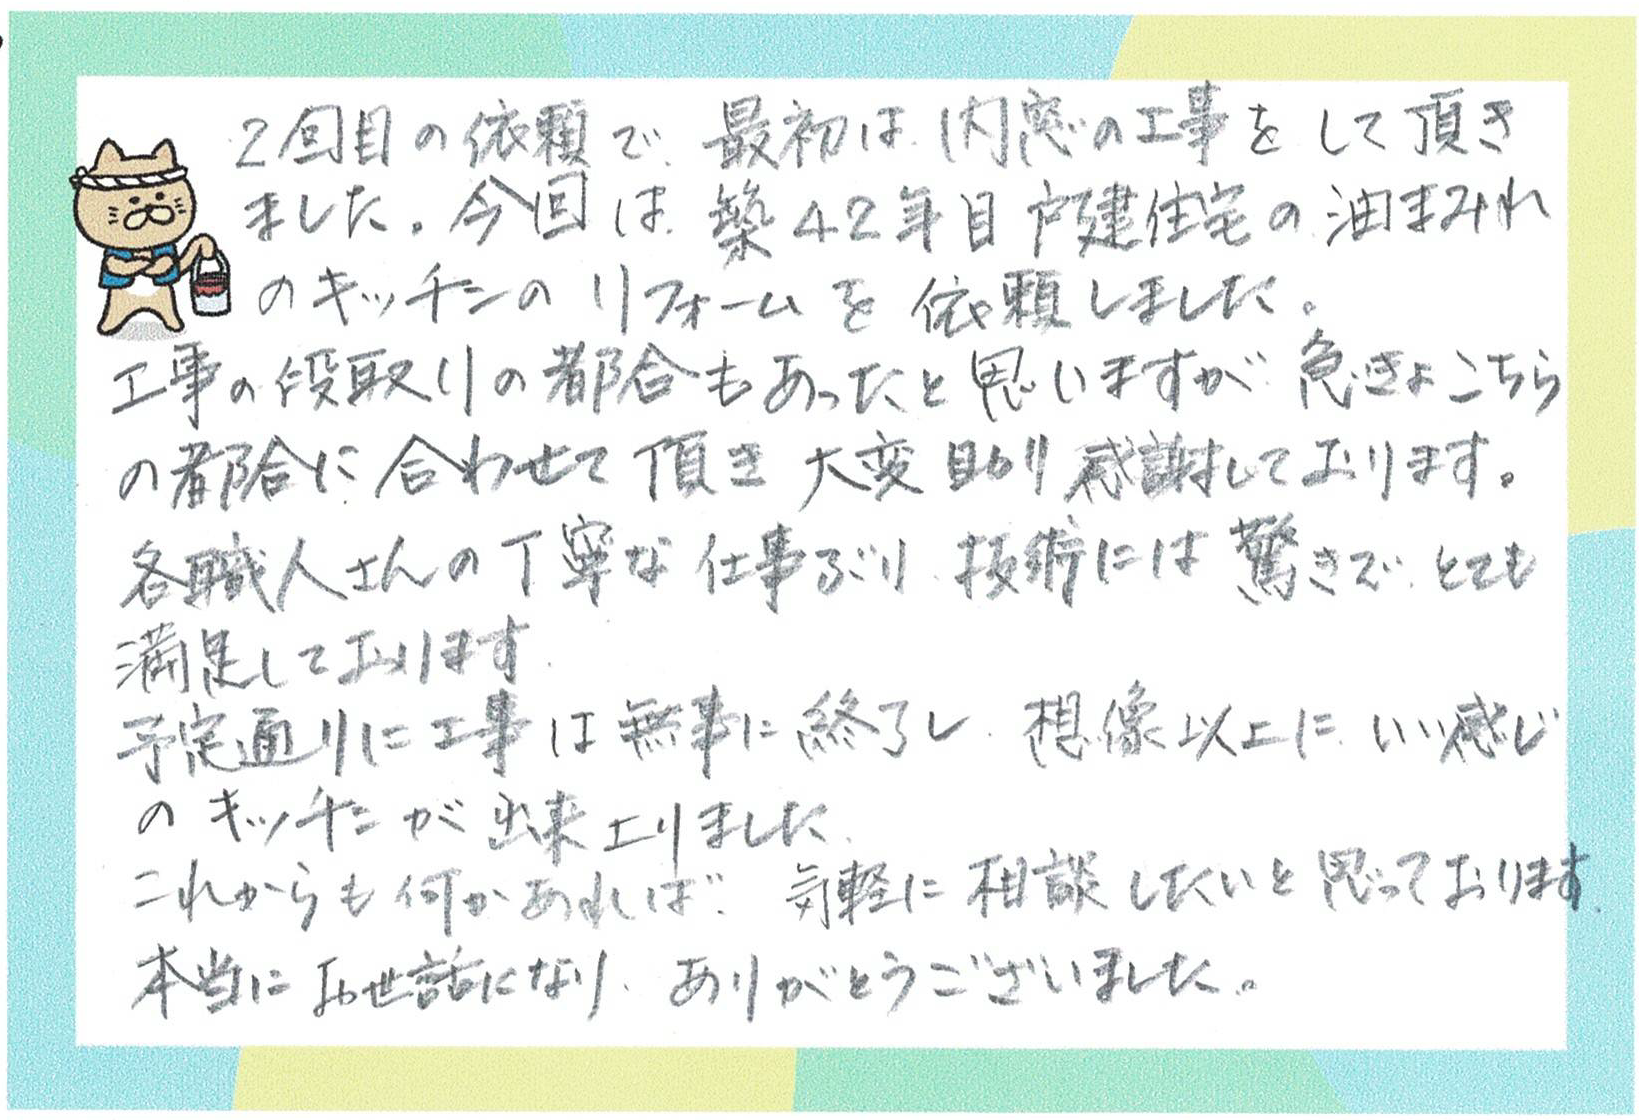 2回目の依頼で、最初は、内窓の工事をして頂き
ました。今回は、築42年目戸建住宅の油まみれ
のキッチンのリフォームを依頼しました。
工事の段取りの都合もあったと思いますが、急きょこちら
の都合に合わせて頂き大変助り感謝しております。
各職人さんの丁寧な仕事ぶり、技術には驚きで、とても
満足しております。
予定通りに工事は無事に終了し、想像以上に、いい感じ
のキッチンが出来上りました。
これからも何かあれば、気軽に相談したいと思っております。
本当にお世話になり、ありがとうございました。